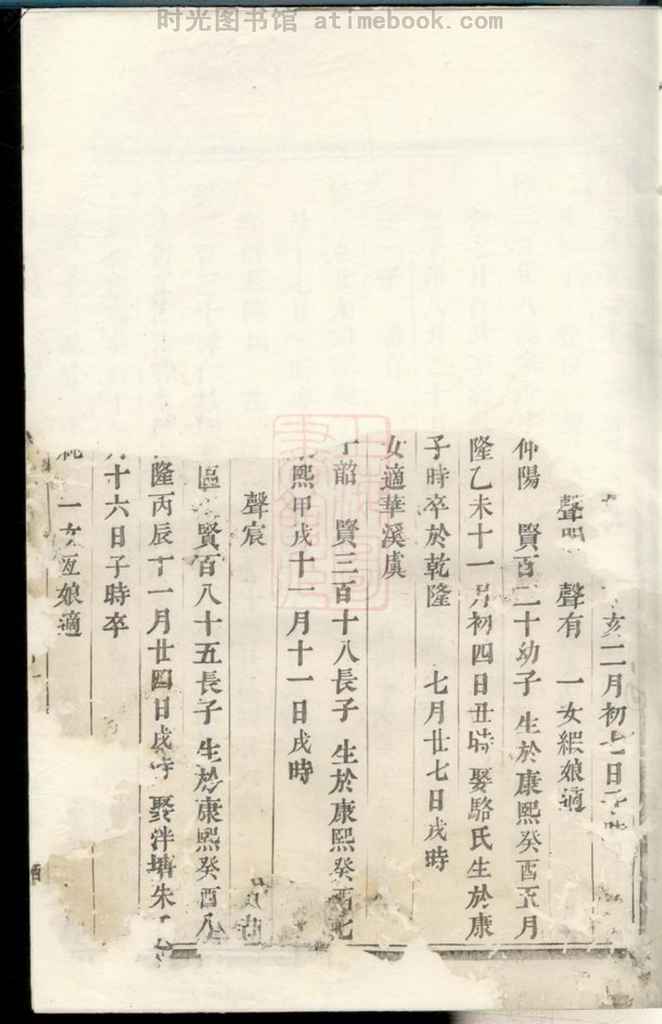 时光图书馆 atimebook.com
亥二月初七日
聲 聲有 一女緞娘適
仲陽 賢百二十幼子 生於康熙癸酉五月
隆乙未十一月初四日丑時 娶駱氏生於康
子時卒於乾隆 七月廿七日戌時
女適華溪虞
韶 賢三百十八長子 生於康熙癸酉七
熙甲戌十一月十一日戌時
聲宸
區 賢百八十五長子 生於康熙癸酉八
隆丙辰十一月廿四日戌時 娶泮塘朱
十六日子時卒
一女恆娘適